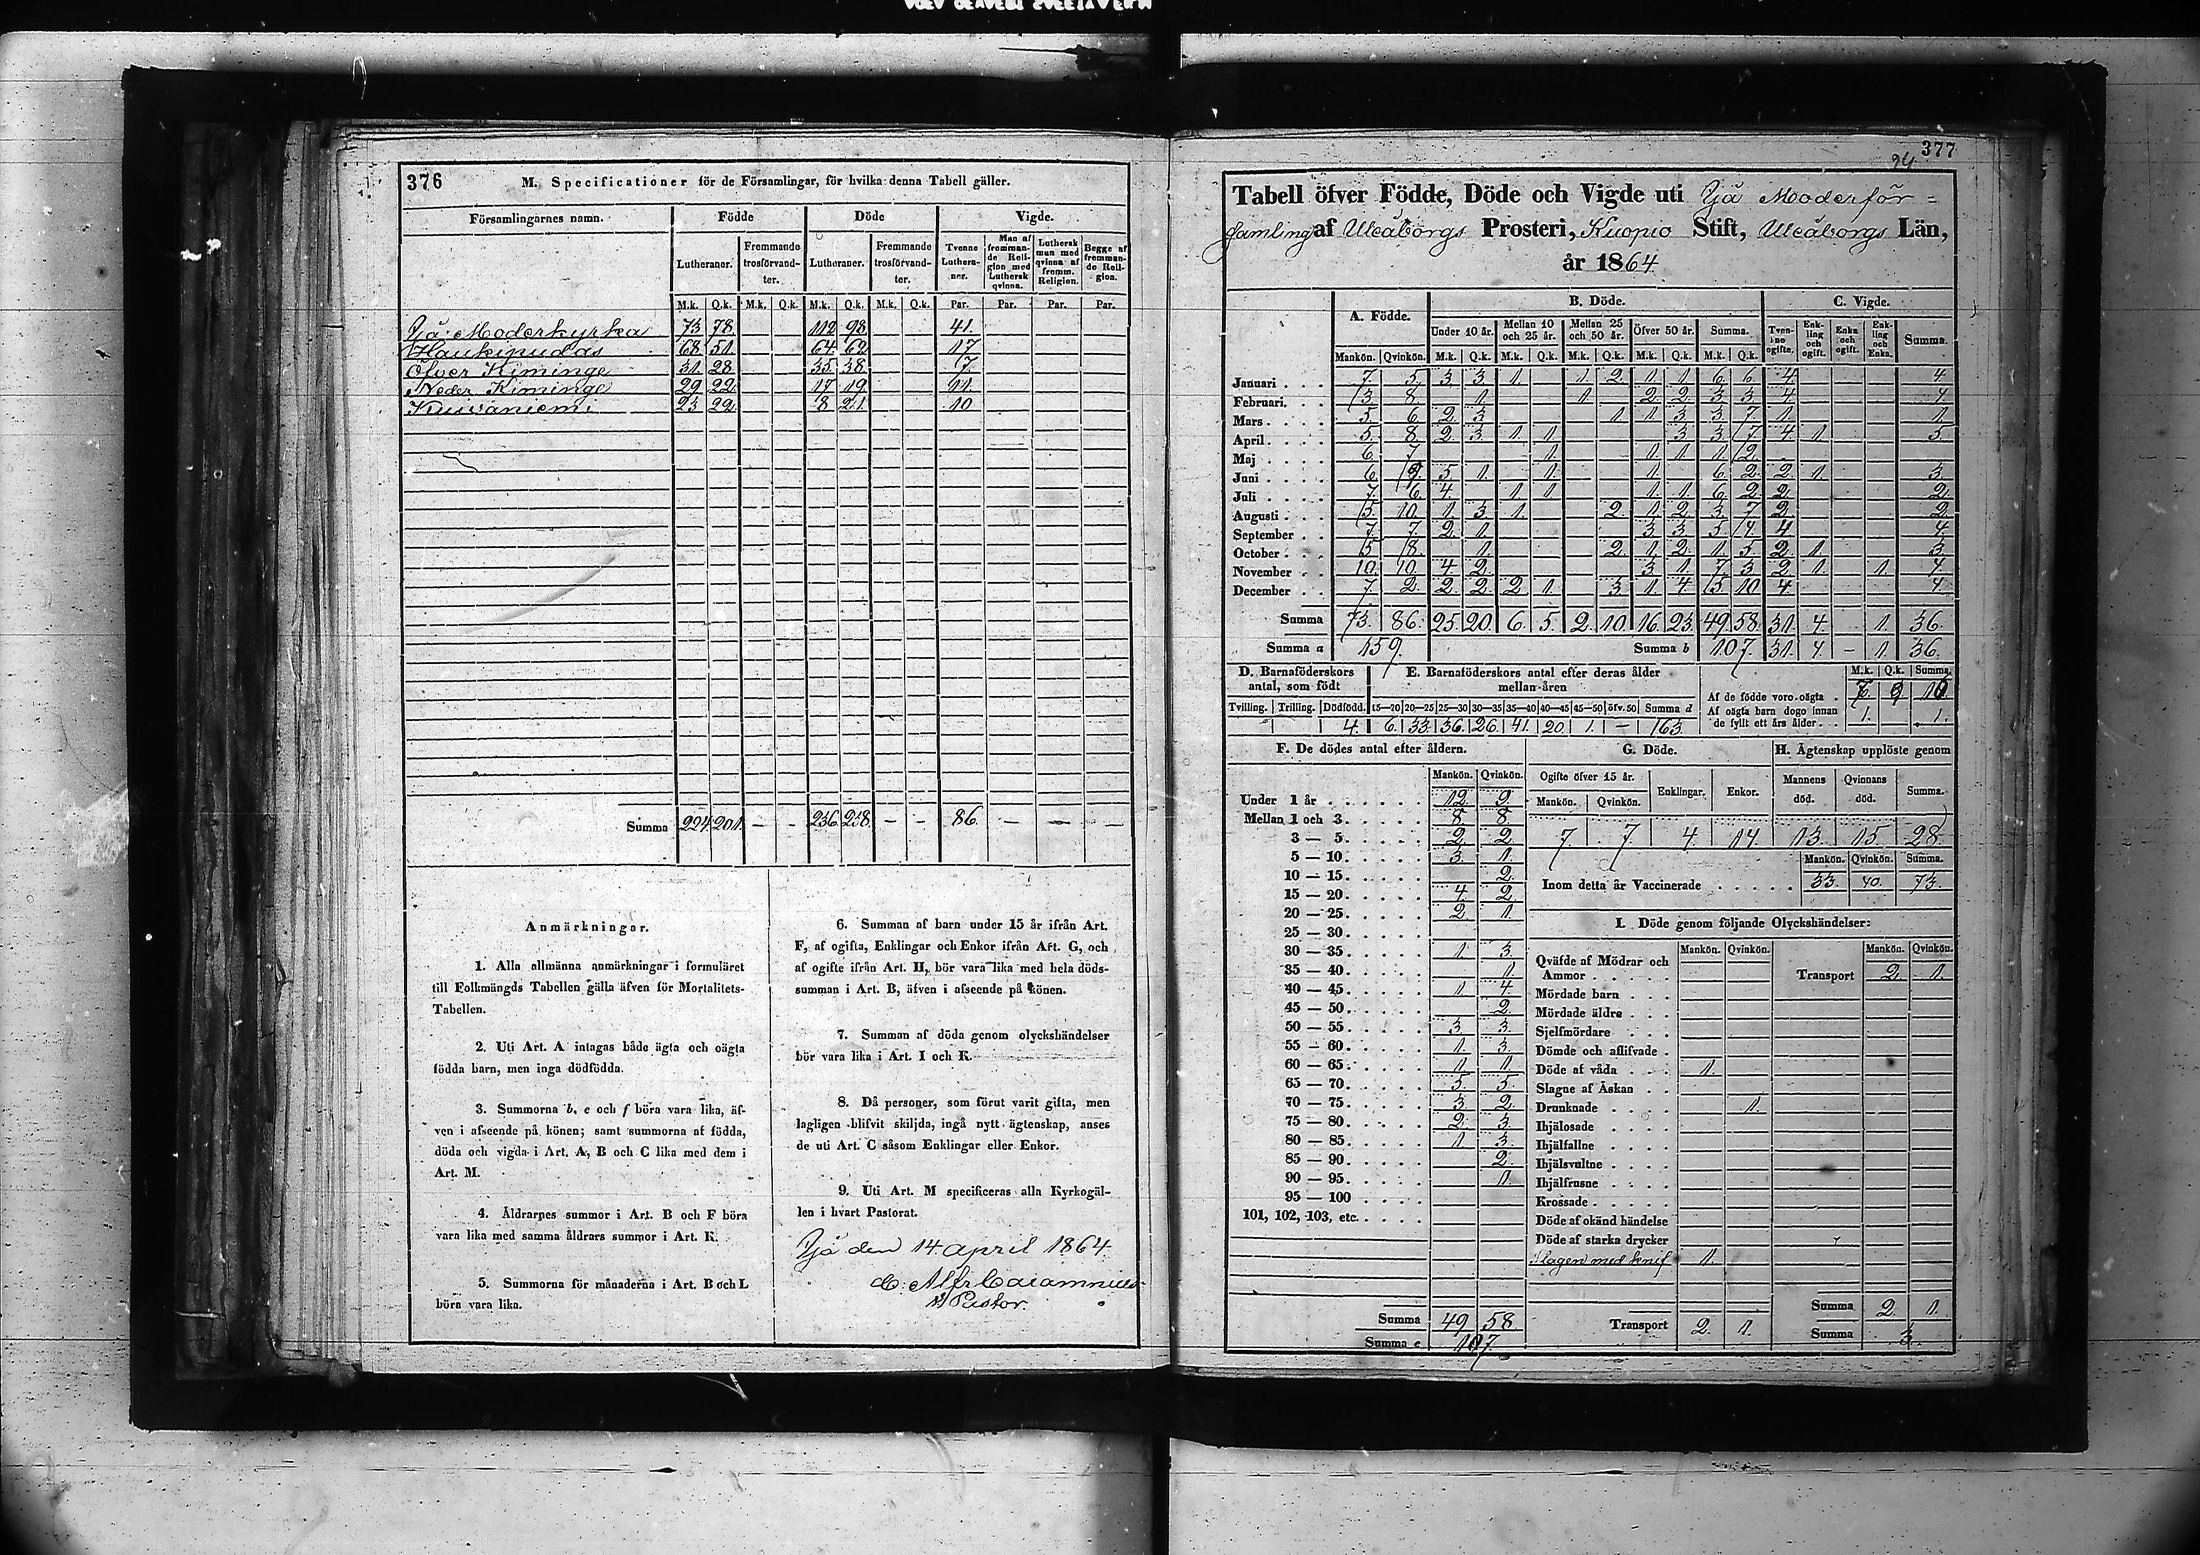 376
M. Specificationer för de Församlingar, för hvilka denna Tabell gäller.
Församlingarnes namn. Födde Döde Vigde.
Lutheraner. Fremmande trosförvandter. Lutheraner. Fremmande trosförvandter. Tvenne Lutheraner. Man af fremmande Religion med Luthersk qvinna. Luthersk man med qvinna af fremm. Religion. Begge af fremmande Religion.
M.k. Q.k. M.k. Q.k. M.k. Q.k. M.k. Q.k. Par. Par. Par. Par.
Ijå Moderkyrka 73 78 112 98 41.
Haukipudas 68 51 64 62 17
Öfver Kiminge 31 28 35 38 7
Neder Kiminge 29 22 17 19 11.
Kuivaniemi 23 22 8 21 10
Summa 224 201 – – 236 238 – – 86. – – –
Anmärkningar.
1. Alla allmänna anmärkningar i formuläret
till Folkmängds Tabellen gälla äfven för Mortalitets-
Tabellen.
2. Uti Art. A intagas både ägta och oägta
födda barn, men inga dödfödda.
3. Summorna b, e och f böra vara lika, äf-
ven i afseende på könen; samt summorna af födda,
döda och vigda i Art. A, B och C lika med dem i
Art. M.
4. Åldrarnes summor i Art. B och F böra
vara lika med samma åldrars summor i Art. K.
5. Summorna för månaderna i Art. B och L
böra vara lika.
6. Summan af barn under 15 år ifrån Art.
F, af ogifta, Enklingar och Enkor ifrån Art. G, och
af ogifte ifrån Art. H, bör vara lika med hela döds-
summan i Art. B, äfven i afseende på könen.
7. Summan af döda genom olyckshändelser
bör vara lika i Art. I och K.
8. Då personer, som förut varit gifta, men
lagligen blifvit skiljda, ingå nytt ägtenskap, anses
de uti Art. C såsom Enklingar eller Enkor.
9. Uti Art. M specificeras alla Kyrkogäl-
len i hvart Pastorat.
Ijå den 14 april 1864
Pastor.
377
Tabell öfver Födde, Döde och Vigde uti Ijå Moderför=
samling af Uleåborgs Prosteri, Kuopio Stift, Uleåborgs Län,
år 1864
A. Födde. B. Döde. C. Vigde.
Under 10 år. Mellan 10 och 25 år. Mellan 25 och 50 år. Öfver 50 år. Summa. Tvenne ogifte. Enkling och ogift. Enka och ogift. Enkling och Enka. Summa.
Mankön. Qvinkön. M.k. Q.k. M.k. Q.k. M.k. Q.k. M.k. Q.k. M.k. Q.k.
Januari 7 5 3 3 1 1 2 1 1 6 6 4 4
Februari. 3 8 1 1 2 2 3 3 4 4
Mars 5 6 2 3 1 1 3 3 7 1 1
April 5 8 2 3 1 1 3 3 7 4 1 5
Maj 6 7 1 1 1 1 2
Juni 6 9 5 1 1 1 6 2 2 1 3
Juli 7 6 4 1 1 1 1 6 2 2 2
Augusti 5 10 1 3 1 2 1 2 3 7 2 2
September 7 7 2 1 3 3 5 4 4 4
October 5 8 1 2 1 2 1 5 2 1 3
November 10 10 4 2 3 1 7 3 2 1 1 4
December 7 2 2 2 2 1 3 1 4 5 10 4 4
Summa 73 86 25 20 6 5 2 10 16 23 49 58 31 4 1 36
Summa a 159. Summa b 107. 31 4 – 1 36
D. Barnaföderskors antal, som födt E. Barnaföderskors antal efter deras ålder mellan åren M.k. Q.k. Summa.
Af de födde voro oägta
Af oägta barn dogo innan de fyllt ett års ålder 1. 1.
Tvilling. Trilling. Dödfödd. 15—20 20—25 25—30 30—35 35—40 40—45 45—50 öfv. 50 Summa d
4. 6. 33 36 26 41 20 1 – 163
F. De dödes antal efter åldern.
Mankön. Qvinkön.
Under 1 år 12 9
Mellan 1 och 3 8 8
3 — 5 2 2
5 — 10 3 1
10 — 15 2
15 — 20 4 2
20 — 25 2 1
25 — 30
30 — 35 1 3
35 — 40 1
40 — 45 1 4
45 — 50 2
50 — 55 3 3
55 — 60 1 3
60 — 65 1 1
65 — 70 5 5
70 — 75 3 2
75 — 80 2 3
80 — 85 1 3
85 — 90 2
90 — 95 1
95 — 100
101, 102, 103, etc.
Summa 49 58
Summa e 107
G. Döde. H. Ägtenskap upplöste genom
Ogifte öfver 15 år. Enklingar. Enkor. Mannens död. Qvinnans död. Summa.
Mankön. Qvinkön.
7 7 4 14 13 15 28
Mankön. Qvinkön. Summa.
Inom detta år Vaccinerade 33 40 73
I. Döde genom följande Olyckshändelser:
Mankön. Qvinkön. Mankön. Qvinkön.
Qväfde af Mödrar och Ammor Transport 2 1
Mördade barn
Mördade äldre
Sjelfmördare
Dömde och aflifvade
Döde af våda 1.
Slagne af Åskan
Drunknade 1.
Ihjälosade
Ihjälfallne
Ihjälsvultne
Ihjälfrusne
Krossade
Döde af okänd händelse
Döde af starka drycker
Slagen med knif 1.
Summa 2 1
Transport 2. 1.
Summa 3